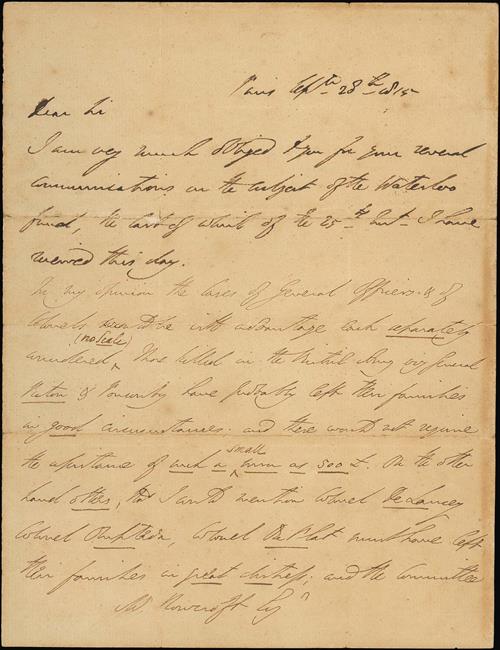 Paris Sept. 28th 1815
Dear Sir
I am very much obliged to you for your several
communications on the subject of the Waterloo
fund, the last of which of the 25th Inst. I have
received this day.
In my opinion the cases of General Officers & of
Colonels would be with advantage each separately
(no scale)
considered. Those killed in the British Army vizt General
Picton & Ponsonby have probably left their families
in good circumstances. and there would not require
small
the assistance of such a sum as 500 £. On the other
hand others, I could mention Colonel De Lancey
Colonel Ompteda, Colonel Du Plat must have left
their families in great distress; and the Committee
Rowcroft Esqr